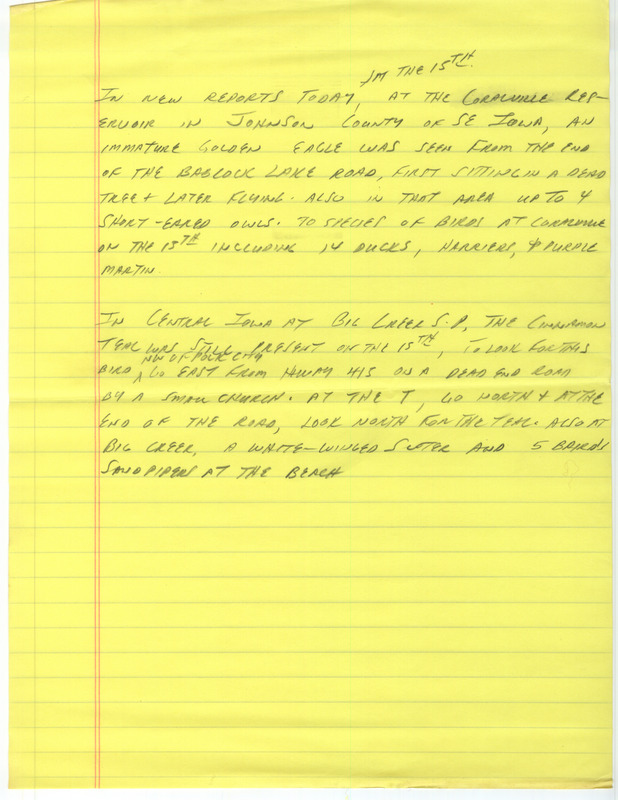 ON THE 15TH.
IN NEW REPORTS TODAY, AT THE CORALVILLE RES-
ERVOIR IN JOHNSON COUNTY OF SE IOWA, AN
IMMATURE GOLDEN EAGLE WAS SEEN FROM THE END
OF THE BABCOCK LAKE ROAD, FIRST SITTING IN A DEAD
TREE + LATER FLYING. ALSO IN THAT AREA UP TO 4
SHORT-EARED OWLS. 70 SPECIES OF BIRDS AT CORALVILLE
ON THE 15TH INCLUDING 14 DUCKS, HARRIERS, & PURPLE
MARTIN.
IN CENTRAL IOWA AT BIG CREEK S.P, THE CINNAMON
TEAL WAS STILL PRESENT ON THE 15TH, TO LOOK FOR THIS
NW OF POLK CITY
BIRD ^ GO EAST FROM HIWAY 415 ON A DEAD END ROAD
BY A SMALL CHURCH. AT THE T, GO NORTH + AT THE
END OF THE ROAD, LOOK NORTH FOR THE TEAL. ALSO AT
BIG CREEK, A WHITE-WINGED SCOTER AND 5 BAIRDS
SANDPIPERS AT THE BEACH